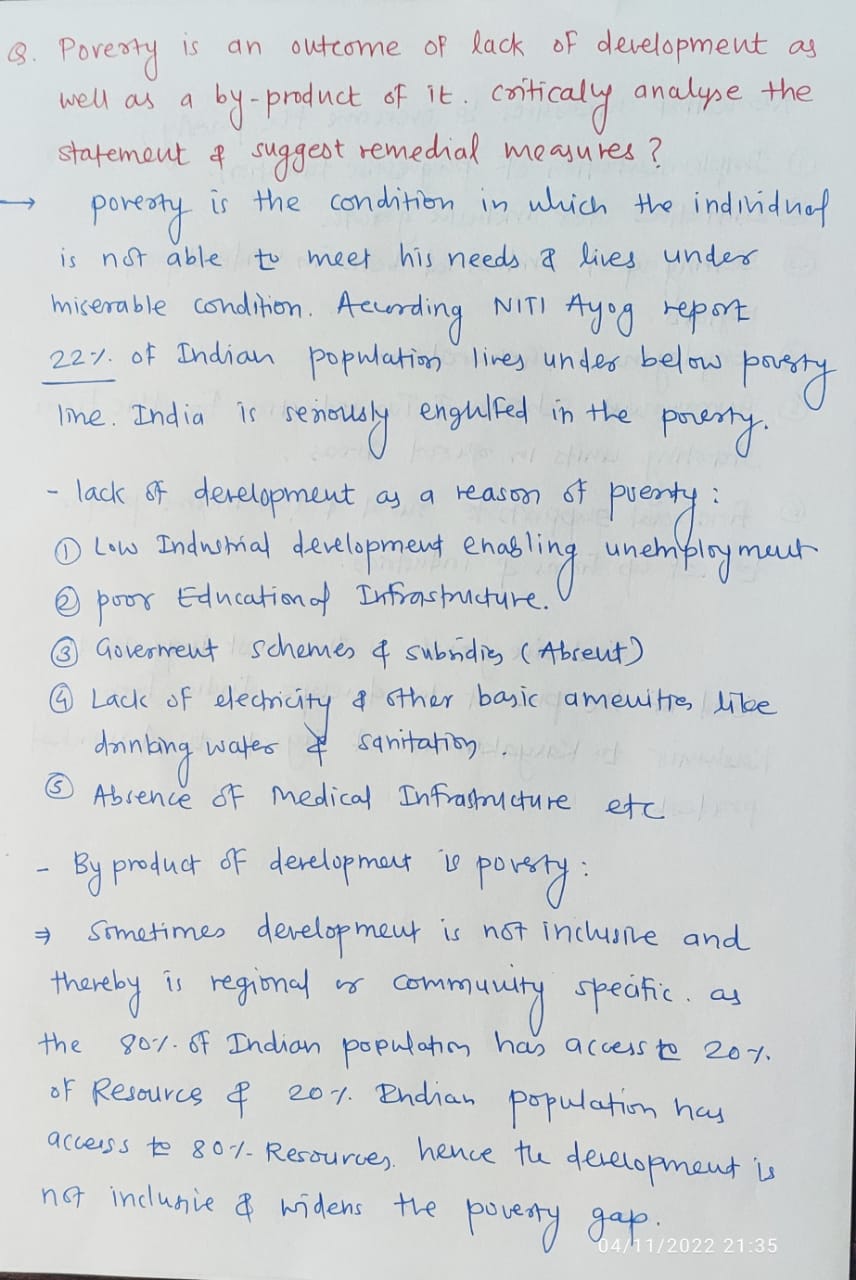 Q. Poverty is an outcome of lack of development as
well as a by-product of it. critically analyse the
statement & suggest remedial measures?
→ poverty is the condition in which the individual
is not able to meet his needs & lives under
miserable condition. According NITI Ayog report
22%. of Indian population lives under below poverty
line. India is seriously engulfed in the poverty.
- lack of development as a reason of poverty:
① Low Industrial development enabling unemployment
② poor Educational Infrastructure.
③ Goverment schemes & subsidies (Absent)
④ Lack of electricity & other basic amenities like
drinking water & sanitation.
⑤ Absence of Medical Infrastructure etc
- By product of development is poverty:
⇒ Sometimes development is not inclusive and
thereby is regional or community specific. as
the 80%. of Indian population has access to 20%.
of Resources & 20%. Indian population has
access to 80%. Resources. hence the development is
not inclusive & widens the poverty gap.
04/11/2022 21:35